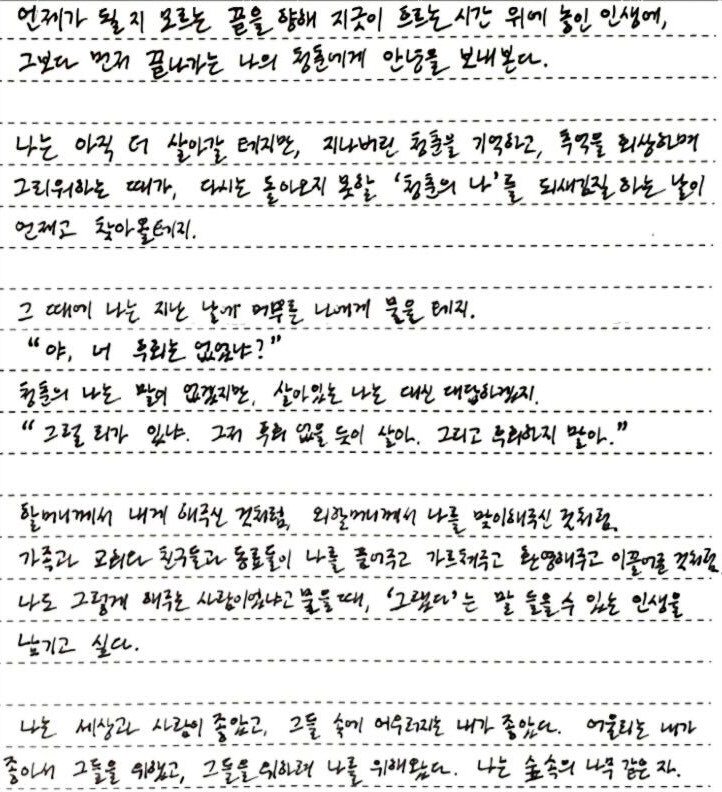 언제가 될 지 모르는 끝을 향해 지긋이 흐르는 시간 위에 놓인 인생에,
그보다 먼저 끝나가는 나의 청춘에게 안녕을 보내본다.
나는 아직 더 살아갈 테지만, 지나버린 청춘을 기억하고, 추억을 회상하며
그리워하는 때가, 다시는 돌아오지 못할 '청춘의 나'를 되새김질 하는 날이
언제고 찾아올테지.
그 때에 나는 지난 날에 머무른 나에게 물을 테지.
"야, 너 후회는 없었냐?"
청춘의 나는 말이 없겠지만, 살아있는 나는 대신 대답하겠지.
"그럴 리가 있냐. 그저 후회 없을 듯이 살아. 그리고 후회하지 말아."
할머니께서 내게 해주신 것처럼, 외할머니께서 나를 맞이해주신 것처럼,
가족과 교회와 친구들과 동료들이 나를 품어주고 가르쳐주고 환영해주고 이끌어준 것처럼,
나도 그렇게 해주는 사람이었냐고 물을 때, '그랬다'는 말 들을 수 있는 인생을
남기고 싶다.
나는 세상과 사람이 좋았고, 그들 속에 어우러지는 내가 좋았다. 어울리는 내가
좋아서 그들을 위했고, 그들을 위하려 나를 위해왔다. 나는 숲속의 나무 같은 자.